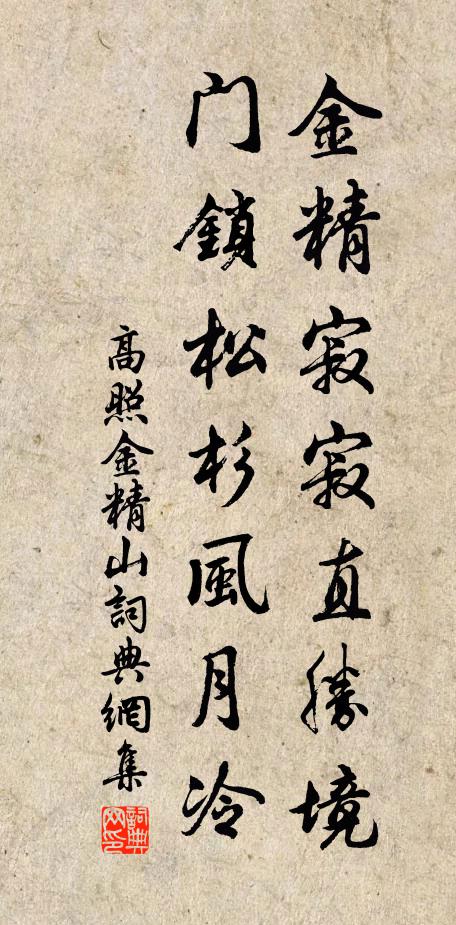 金精寂寂直勝境
门鎖松杉風月冷
高照金精山詞典網集
詞典网印